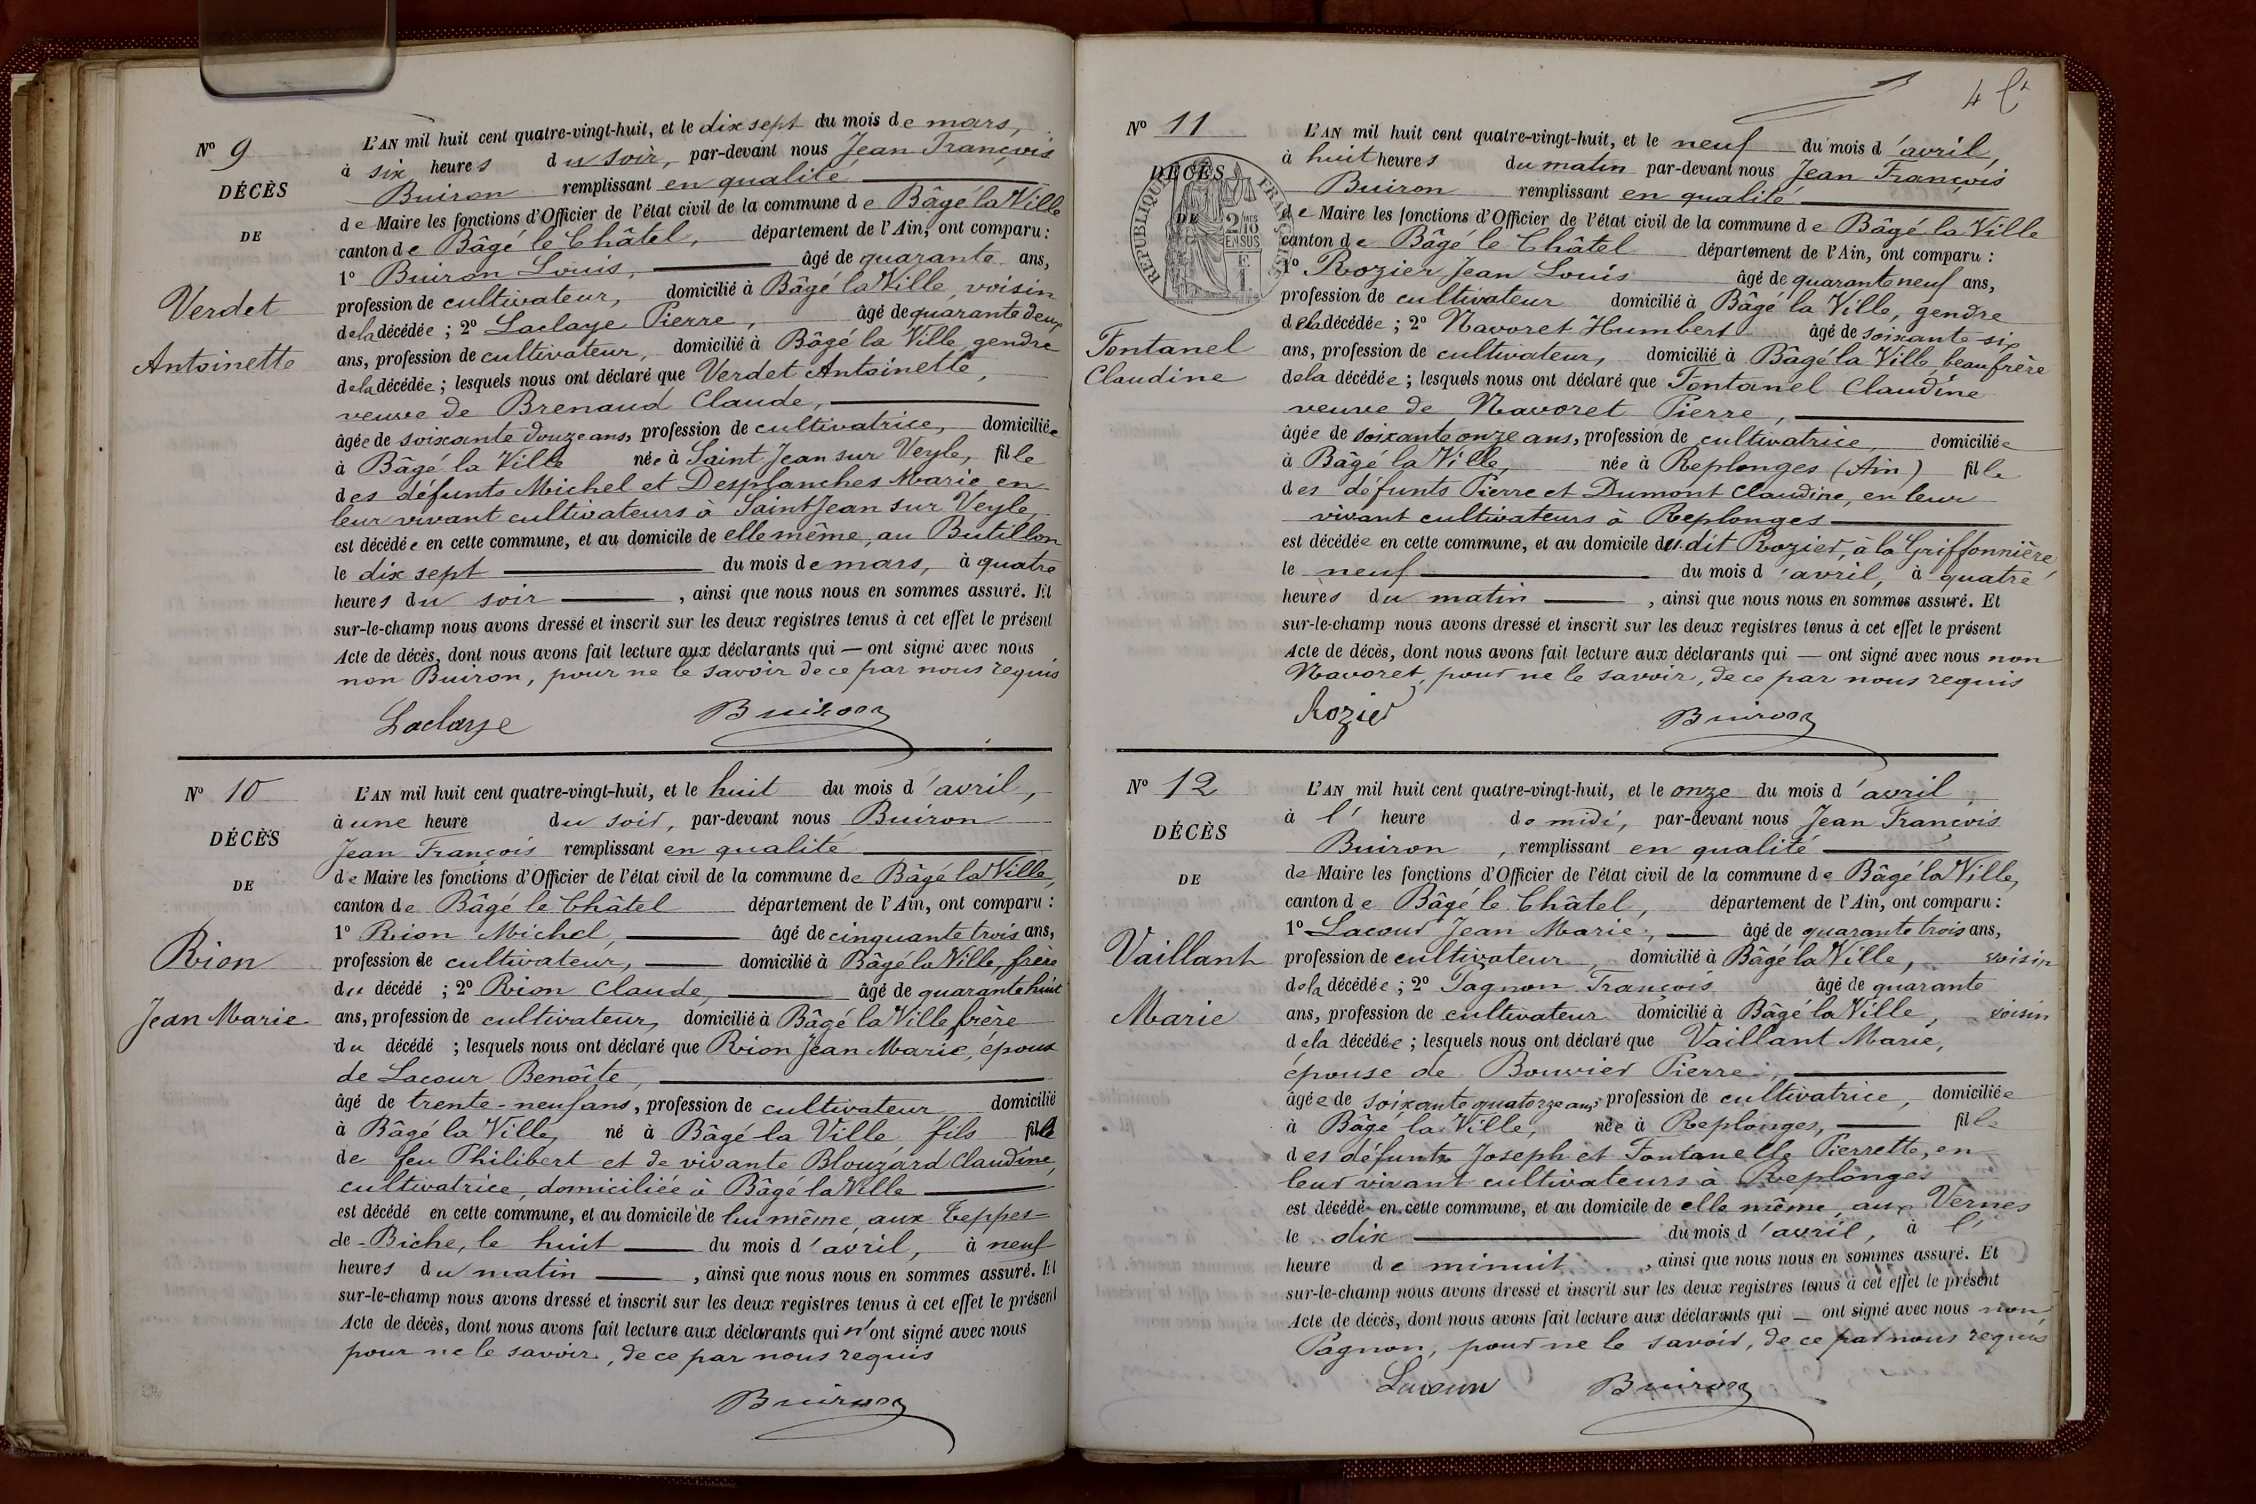 N° 9
DÉCÈS
DE
Verdet
Antoinette
L'AN mil huit cent quatre-vingt-huit, et le dix sept du mois de mars,
à six heures du soir, par-devant nous Jean François
Buiron remplissant en qualité
de Maire les fonctions d'Officier de l'état civil de la commune de Bâgé la Ville
canton de Bâgé le Châtel, département de l'Ain, ont comparu :
1° Buiron Louis, âgé de quarante ans,
profession de cultivateur, domicilié à Bâgé la Ville, voisin
de la décédée ; 2° Laclaye Pierre, âgé de quarante deux
ans, profession de cultivateur, domicilié à Bâgé la Ville, gendre
de la décédée ; lesquels nous ont déclaré que Verdet Antoinette,
veuve de Brenaud Claude,
âgée de soixante douze ans, profession de cultivatrice, domiciliée
à Bâgé la Ville née à Saint Jean sur Veyle, fille
des défunts Michel et Desplanches Marie en
leur vivant cultivateurs à Saint Jean sur Veyle,
est décédée en cette commune, et au domicile de elle même, au Butillon
le dix sept du mois de mars, à quatre
heures du soir, ainsi que nous nous en sommes assuré. Et
sur-le-champ nous avons dressé et inscrit sur les deux registres tenus à cet effet le présent
Acte de décès, dont nous avons fait lecture aux déclarants qui — ont signé avec nous
non Buiron, pour ne le savoir de ce par nous requis
Laclaye Buiron
N° 10
DÉCÈS
DE
Rion
Jean Marie
L'AN mil huit cent quatre-vingt-huit, et le huit du mois d'avril,
à une heure du soir, par-devant nous Buiron
Jean François remplissant en qualité
de Maire les fonctions d'Officier de l'état civil de la commune de Bâgé la Ville,
canton de Bâgé le Châtel département de l'Ain, ont comparu :
1° Rion Michel, âgé de cinquante trois ans,
profession de cultivateur, domicilié à Bâgé la Ville, frère
du décédé ; 2° Rion Claude, âgé de quarante huit
ans, profession de cultivateur, domicilié à Bâgé la Ville frère
du décédé ; lesquels nous ont déclaré que Rion Jean Marie, époux
de Lacour Benoîte,
âgé de trente-neuf ans, profession de cultivateur domicilié
à Bâgé la Ville, né à Bâgé la Ville fils
de feu Philibert et de vivante Blouzard Claudine,
cultivatrice, domiciliée à Bâgé la Ville
est décédé en cette commune, et au domicile de lui même, aux Teppes-
de-Biche, le huit du mois d'avril, à neuf
heures du matin, ainsi que nous nous en sommes assuré. Et
sur-le-champ nous avons dressé et inscrit sur les deux registres tenus à cet effet le présent
Acte de décès, dont nous avons fait lecture aux déclarants qui n'ont signé avec nous
pour ne le savoir, de ce par nous requis
Buiron
4
N° 11
DÉCÈS
DE
RÉPUBLIQUE FRANÇAISE
2/10 EN SUS
Fontanel
Claudine
L'AN mil huit cent quatre-vingt-huit, et le neuf du mois d'avril,
à huit heures du matin par-devant nous Jean François
Buiron remplissant en qualité
de Maire les fonctions d'Officier de l'état civil de la commune de Bâgé la Ville
canton de Bâgé le Châtel département de l'Ain, ont comparu :
1° Rozier Jean Louis âgé de quarante neuf ans,
profession de cultivateur domicilié à Bâgé la Ville, gendre
de la décédée ; 2° Navoret Humbert âgé de soixante six
ans, profession de cultivateur, domicilié à Bâgé la Ville, beau frère
de la décédée ; lesquels nous ont déclaré que Fontanel Claudine
veuve de Navoret Pierre,
âgée de soixante onze ans, profession de cultivatrice domiciliée
à Bâgé la Ville, née à Replonges (Ain) fille
des défunts Pierre et Dumont Claudine, en leur
vivant cultivateurs à Replonges
est décédée en cette commune, et au domicile du dit Rozier, à la Griffonnière,
le neuf du mois d'avril, à quatre
heures du matin, ainsi que nous nous en sommes assuré. Et
sur-le-champ nous avons dressé et inscrit sur les deux registres tenus à cet effet le présent
Acte de décès, dont nous avons fait lecture aux déclarants qui — ont signé avec nous non
Navoret, pour ne le savoir, de ce par nous requis
Rozier Buiron
N° 12
DÉCÈS
DE
Vaillant
Marie
L'AN mil huit cent quatre-vingt-huit, et le onze du mois d'avril,
à l' heure de midi, par-devant nous Jean François
Buiron, remplissant en qualité
de Maire les fonctions d'Officier de l'état civil de la commune de Bâgé la Ville,
canton de Bâgé le Châtel, département de l'Ain, ont comparu :
1° Lacour Jean Marie, âgé de quarante trois ans,
profession de cultivateur, domicilié à Bâgé la Ville, voisin
de la décédée ; 2° Pagnon François âgé de quarante
ans, profession de cultivateur domicilié à Bâgé la Ville, voisin
de la décédée ; lesquels nous ont déclaré que Vaillant Marie,
épouse de Bouvier Pierre,
âgée de soixante quatorze ans, profession de cultivatrice, domiciliée
à Bâgé la Ville, née à Replonges, fille
des défunts Joseph et Fontanelle Pierrette, en
leur vivant cultivateurs à Replonges
est décédé en cette commune, et au domicile de elle même, aux Vernes
le dix du mois d'avril, à l'
heure de minuit, ainsi que nous nous en sommes assuré. Et
sur-le-champ nous avons dressé et inscrit sur les deux registres tenus à cet effet le présent
Acte de décès, dont nous avons fait lecture aux déclarants qui — ont signé avec nous non
Pagnon, pour ne le savoir, de ce par nous requis
Lacour Buiron